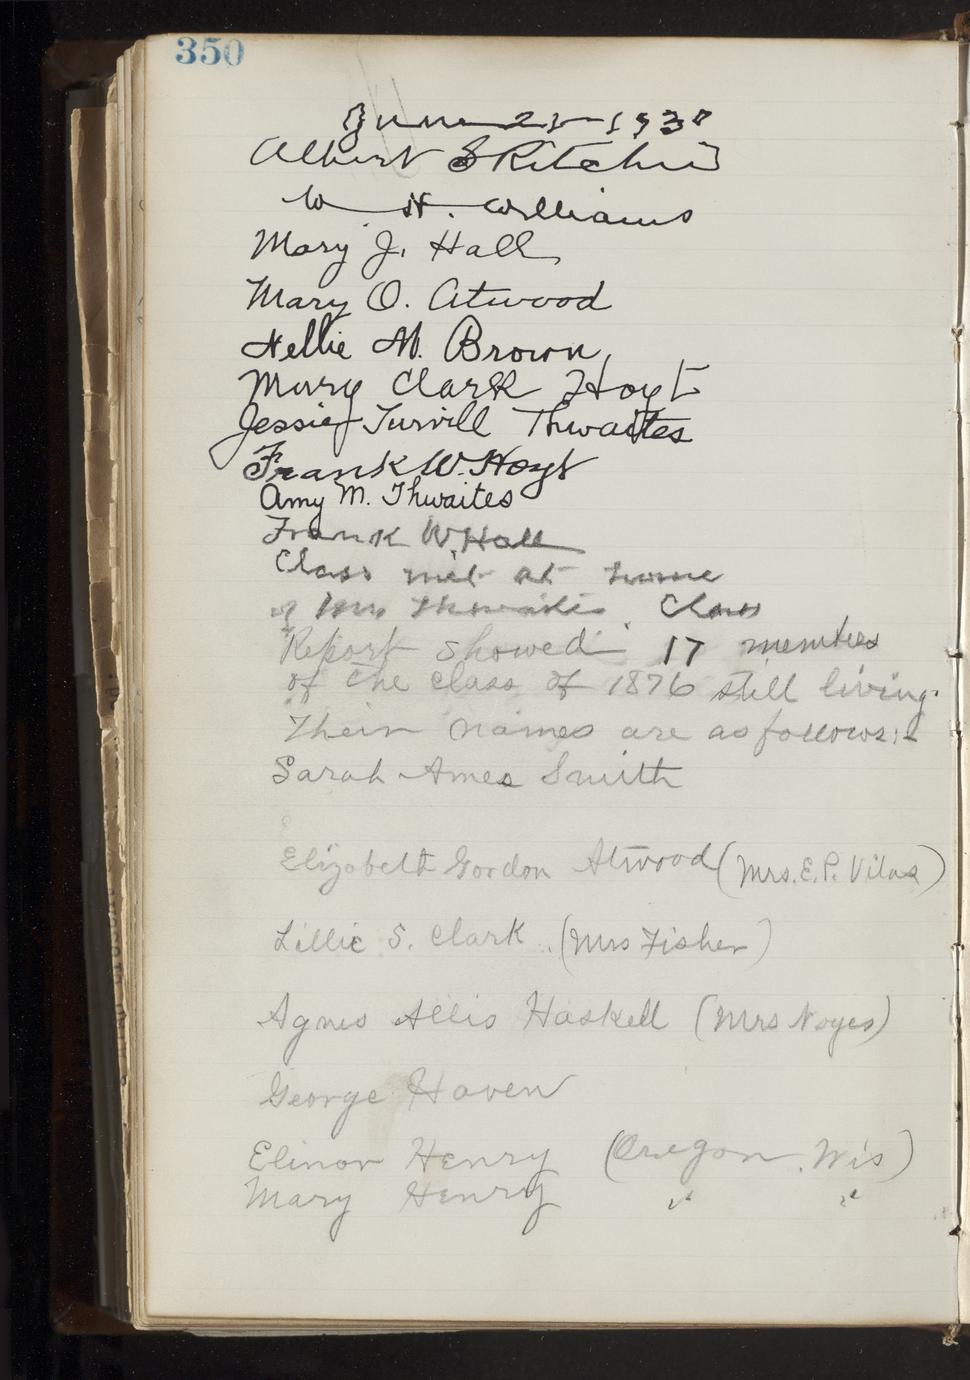 350
June 21 1930
Albert S Ritchie
W. H. Williams
Mary J. Hall
Mary O. Atwood
Nellie M. Brown,
Mary Clark Hoyt
Jessie Turvill Thwaites
Frank W. Hoyt
Amy M. Thwaites
Frank W. Hall
Class met at home
of Mrs Thwaites. Class
Report showed 17 members
of the class of 1876 still living.
Their names are as follows:-
Sarah Ames Smith
Elizabeth Gordon Atwood (Mrs. E. P. Vilas)
Lillie S. Clark. (Mrs Fisher)
Agnes Allis Haskell (Mrs Noyes)
George Haven
Elinor Henry (Oregon. Wis)
Mary Henry " "